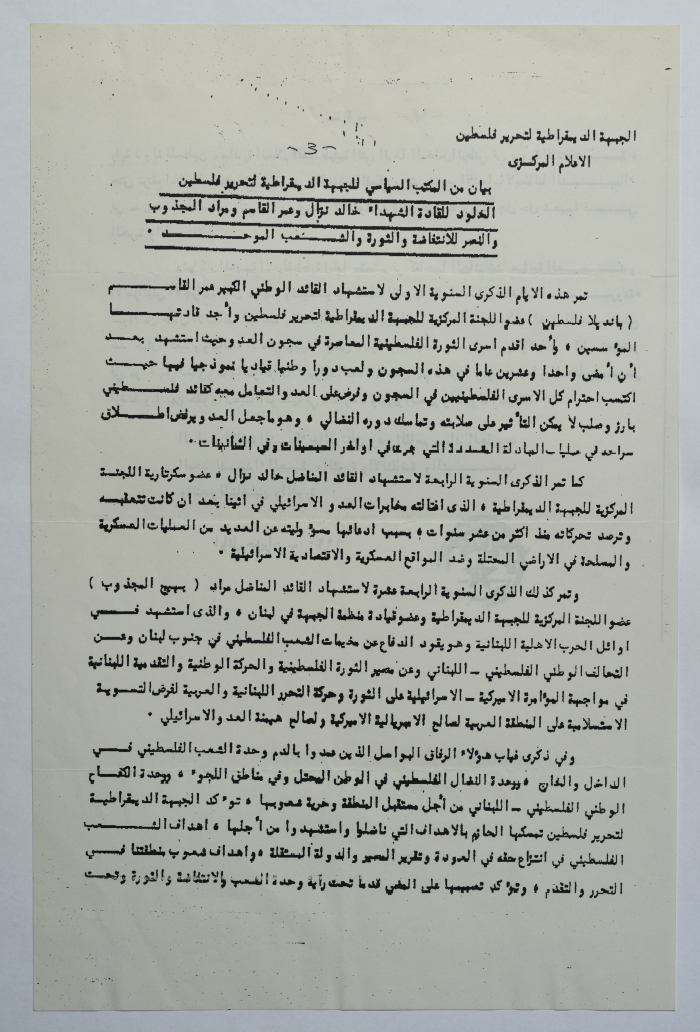 الجبهة الديمقراطية لتحرير فلسطين
الاعلام المركزى
-3-
بيان من المكتب السياسي للجبهة الديمقراطية لتحرير فلسطين
الخلود للقادة الشهداء خالد نزال وعمر القاسم ومراد المجذوب
والنصر للانتفاضة والثورة والشعب الموحد .
تمر هذه الايام الذكرى السنوية الاولى لاستشهاد القائد الوطني الكبير عمر القاسم
( مانديلا فلسطين ) عضو اللجنة المركزية للجبهة الديمقراطية لتحرير فلسطين وأحد قادتها
المؤسسين ، وأحد اقدم اسرى الثورة الفلسطينية المعاصرة في سجون العدو وحيث استشهد بعد
أن أمضى واحدا وعشرين عاما في هذه السجون ولعب دورا وطنيا قياديا نموذجيا فيها حيث
اكتسب احترام كل الاسرى الفلسطينيين في السجون وفرض على العدو التعامل معه كقائد فلسطيني
بارز وصلب لا يمكن التأثير على صلابته وتماسك دوره النضالي ، وهو ما جعل العدو يرفض اطلاق
سراحه في عمليات المبادلة المتعددة التي جرت في اواخر السبعينات وفي الثمانينات .
كما تمر الذكرى السنوية الرابعة لاستشهاد القائد المناضل خالد نزال ، عضو سكرتارية اللجنة
المركزية للجبهة الديمقراطية ، الذى اغتالته مخابرات العدو الاسرائيلي في اثينا بعد ان كانت تتعقبه
وترصد تحركاته منذ اكثر من عشر سنوات ، بسبب ادعائها مسؤوليته عن العديد من العمليات العسكرية
والمسلحة في الاراضي المحتلة وضد المواقع العسكرية والاقتصادية الاسرائيلية .
وتمر كذلك الذكرى السنوية الرابعة عشرة لاستشهاد القائد المناضل مراد ( بهيج المجذوب )
عضو اللجنة المركزية للجبهة الديمقراطية وعضو قيادة منظمة الجبهة في لبنان ، والذى استشهد في
اوائل الحرب الاهلية اللبنانية وهو يقود الدفاع عن مخيمات الشعب الفلسطيني في جنوب لبنان وعن
التحالف الوطني الفلسطيني - اللبناني وعن مصير الثورة الفلسطينية والحركة الوطنية والتقدمية اللبنانية
في مواجهة المؤامرة الاميركية - الاسرائيلية على الثورة وحركة التحرر اللبنانية والعربية لفرض التسوية
الاستسلامية على المنطقة العربية لصالح الامبريالية الاميركية ولصالح هيمنة العدو الاسرائيلي .
وفي ذكرى غياب هؤلاء الرفاق البواسل الذين عمدوا بالدم وحدة الشعب الفلسطيني في
الداخل والخارج ، ووحدة النضال الفلسطيني في الوطن المحتل وفي مناطق اللجوء ، ووحدة الكفاح
الوطني الفلسطيني - اللبناني من أجل مستقبل المنطقة وحرية شعوبها ، تؤكد الجبهة الديمقراطية
لتحرير فلسطين تمسكها الحازم بالاهداف التي ناضلوا واستشهدوا من أجلها ، اهداف الشعب
الفلسطيني في انتزاع حقه في العودة وتقرير المصير والدولة المستقلة ، واهداف شعوب منطقتنا في
التحرر والتقدم ، وتؤكد تصميمها على المضي قدما تحت رأية وحدة الشعب والانتفاضة والثورة وتحت